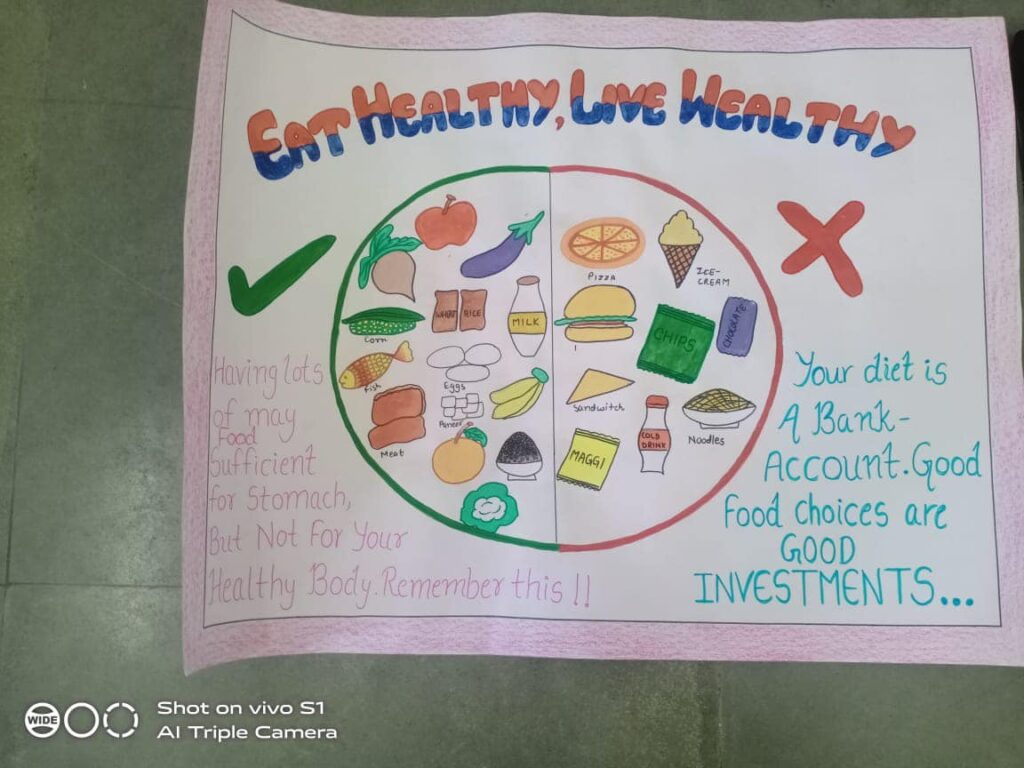 EAT HEALTHY, LIVE WEALTHY
PIZZA
ICE-
CREAM
Corn
WHEAT
RICE
MILK
CHIPS
CHOCOLATE
Fish
Eggs
Paneer
Meat
Sandwitch
COLD
DRINK
Noodles
MAGGI
Having lots
of may
Food
Sufficient
for Stomach,
But Not For Your
Healthy Body. Remember this !!
Your diet is
A Bank-
Account. Good
Food choices are
GOOD
INVESTMENTS...
WIDE
Shot on vivo S1
AI Triple Camera